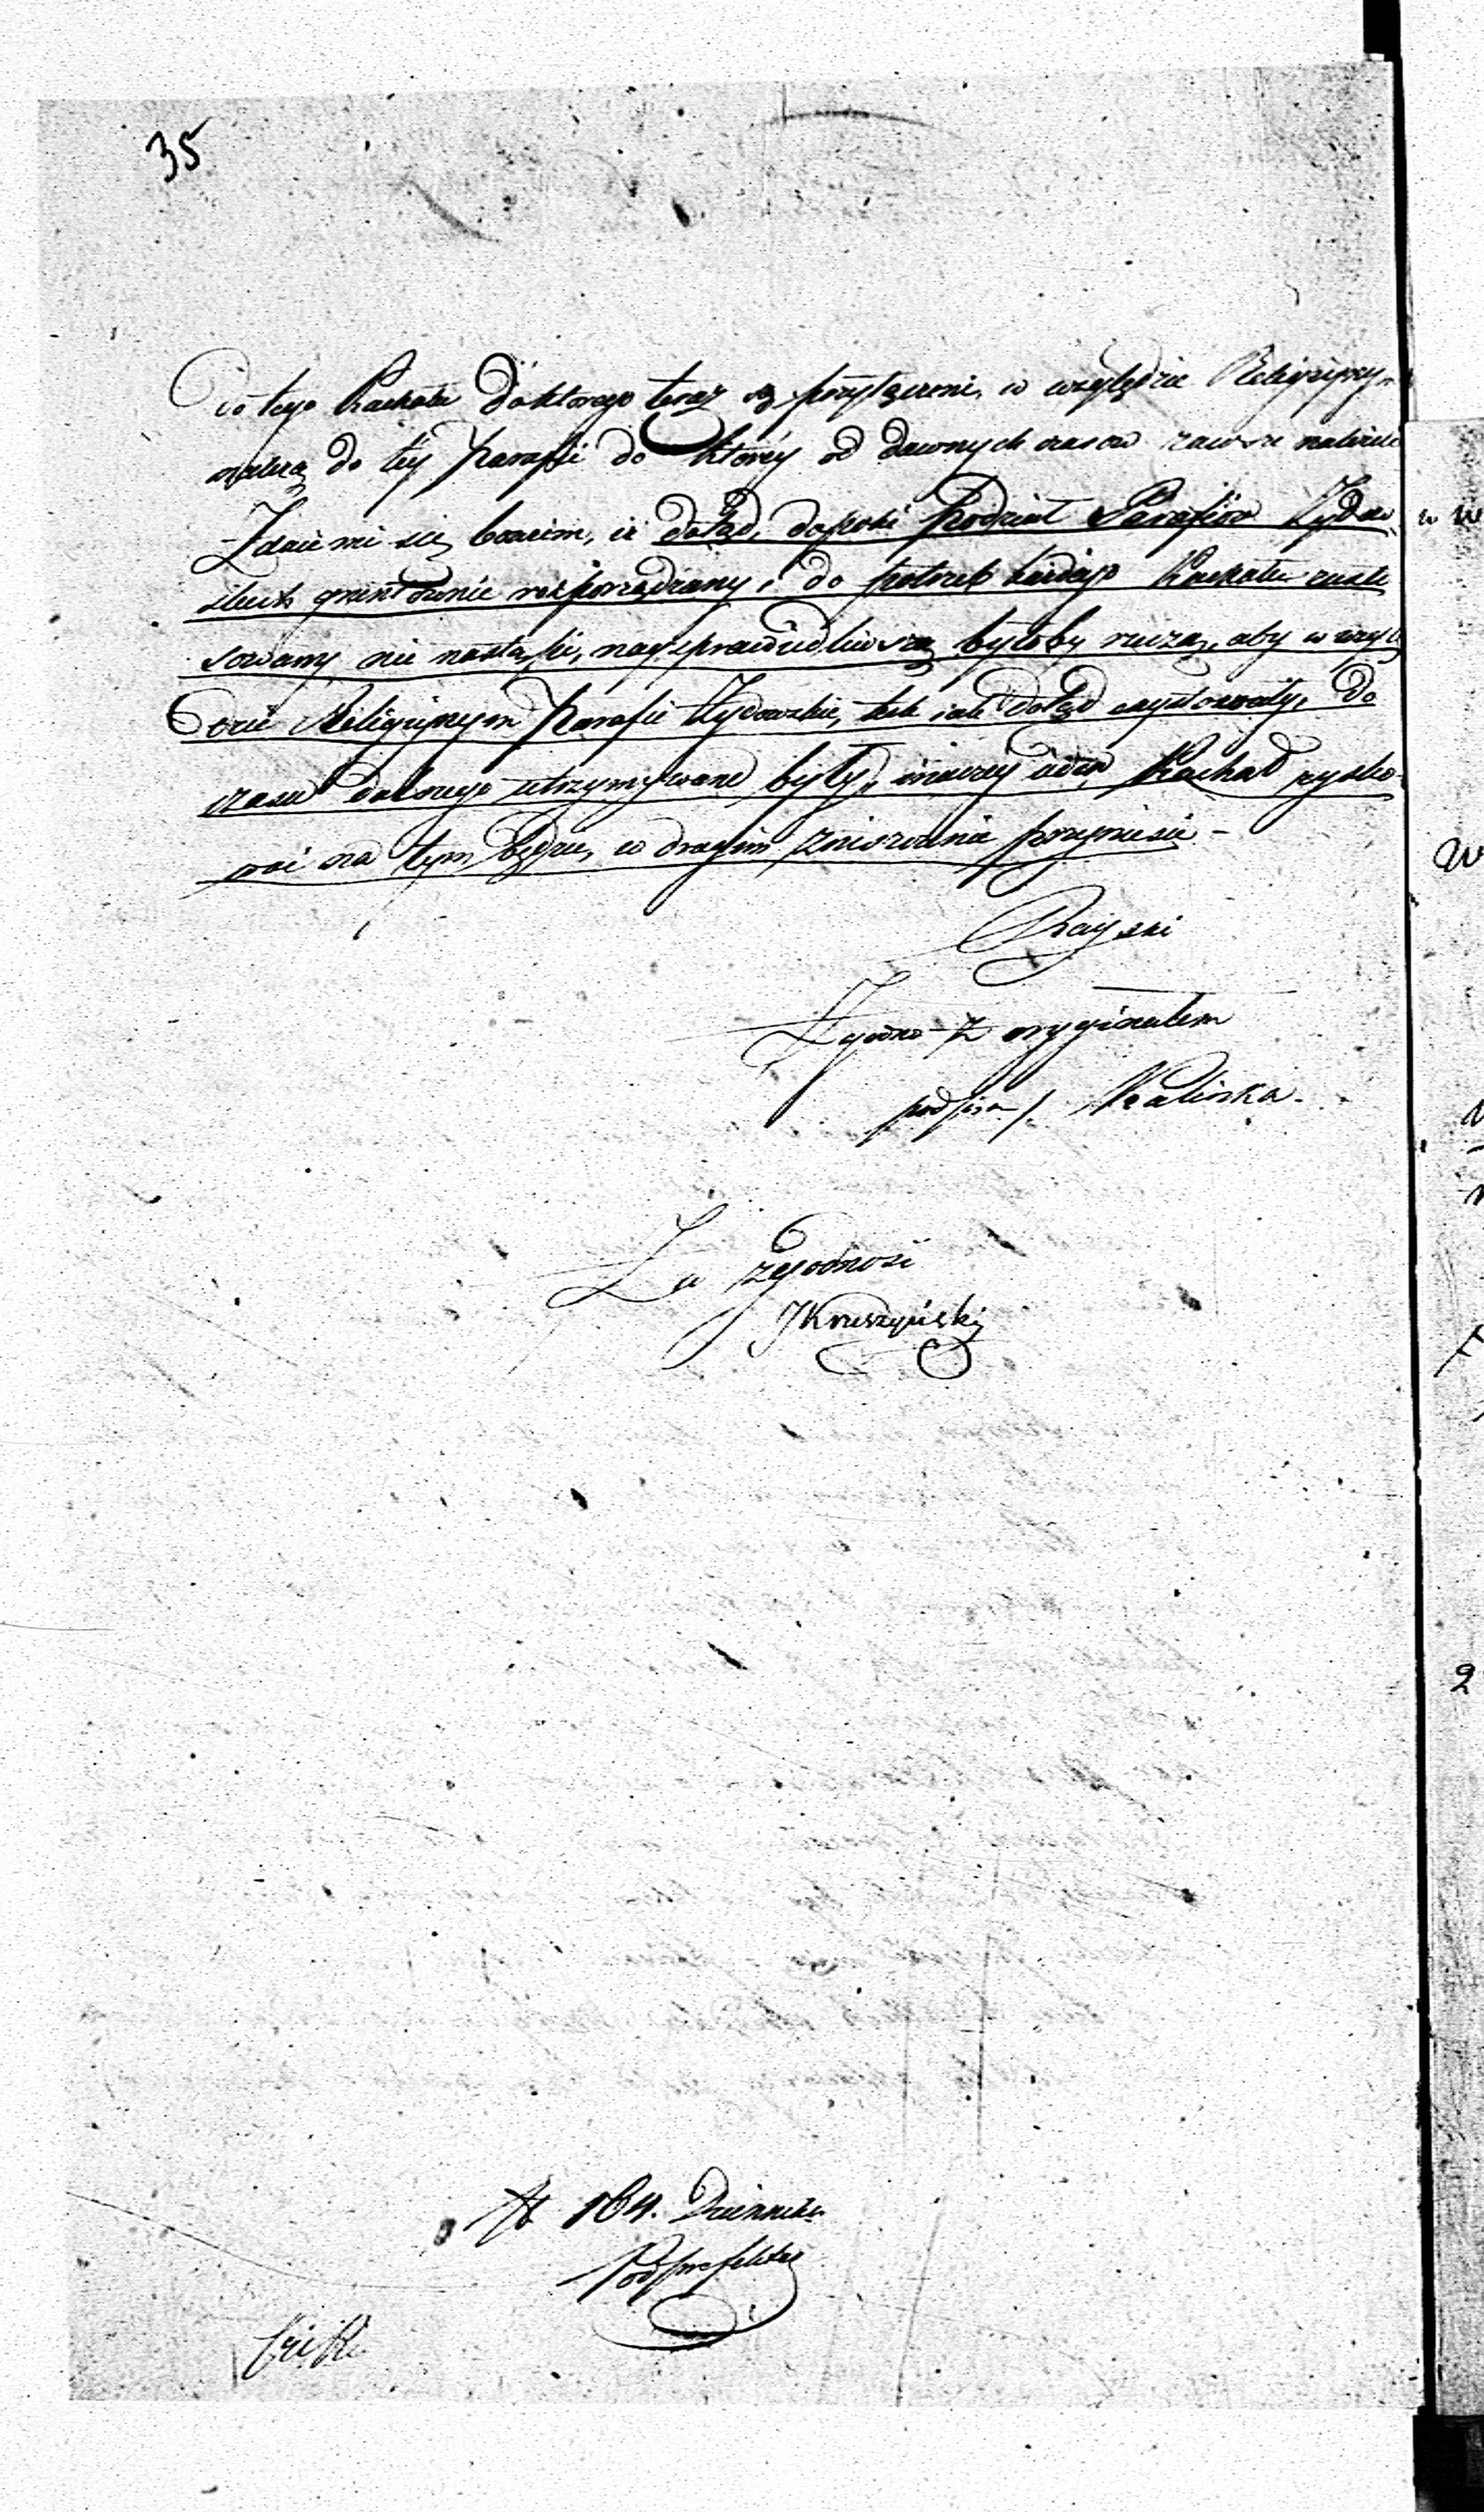 35
do tego Kachału do którego teraz są przyłączeni, w względzie Religijnym
należą do tey Parafii do którey od dawnych czasow zawsze należeli
Zdaie mi się bowiem, iż dotąd, dopoki podział Parafiow Żydow
skich gruntownie rozporządzany, i do potrzeb każdego Kachału zasto
sowany nie nastąpi, naysprawiedliwszą byłoby rzeczą, aby w wzglę
dzie Religijnym Parafie Żydowskie, tak iak dotąd exystowały, do
czasu dalszego utrzymywane były, inaczey ieden Kachał zysko
wać na tym będzie, a drugim zniszczenie przyniesie –
Rayski
Zgodno z oryginałem
podpisa /. Kalinka.
Za zgodność
JKruszyński
№ 164. Dziennika
Podprefekta